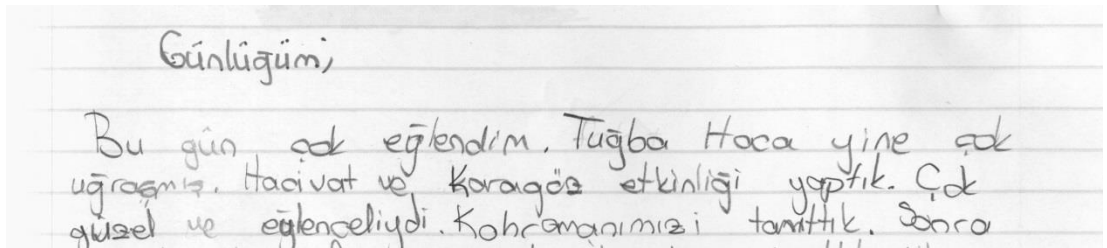 Günlüğüm,
Bu gün çok eğlendim. Tuğba Hoca yine çok
uğraşmış. Hacivat ve Karagöz etkinliği yaptık. Çok
güzel ve eğlenceliydi. Kahramanımızi tanıttık. Sonra